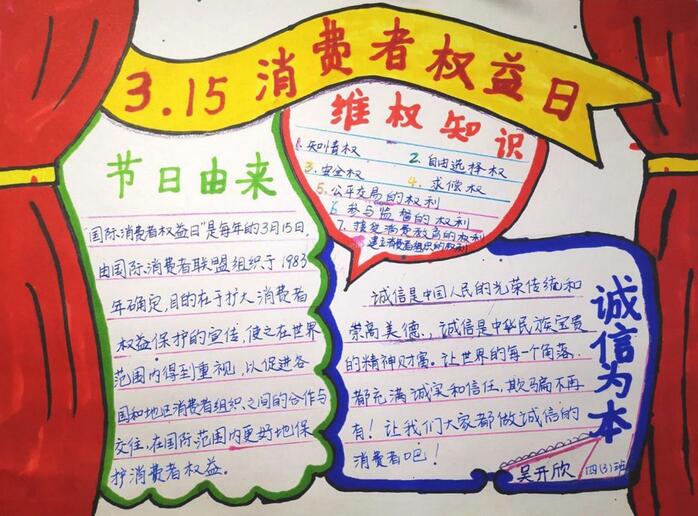 3.15消费者权益日
节日由来
"国际消费者权益日"是每年的3月15日,
由国际消费者联盟组织于1983
年确定,目的在于扩大消费者
权益保护的宣传,使之在世界
范围内得到重视,以促进各
国和地区消费者组织之间的合作与
交往,在国际范围内更好地保
护消费者权益。
维权知识
1.知情权
2.自由选择权
3.安全权
4.求偿权
5.公平交易的权利
6.参与监督的权利
7.接受消费教育的权利
建立消费者组织的权利
诚信为本
诚信是中国人民的光荣传统和
崇高美德.,诚信是中华民族宝贵
的精神财富。让世界的每一个角落.
都充满诚实和信任,欺骗不再
有!让我们大家都做诚信的
消费者吧!
吴开欣
四(3)班